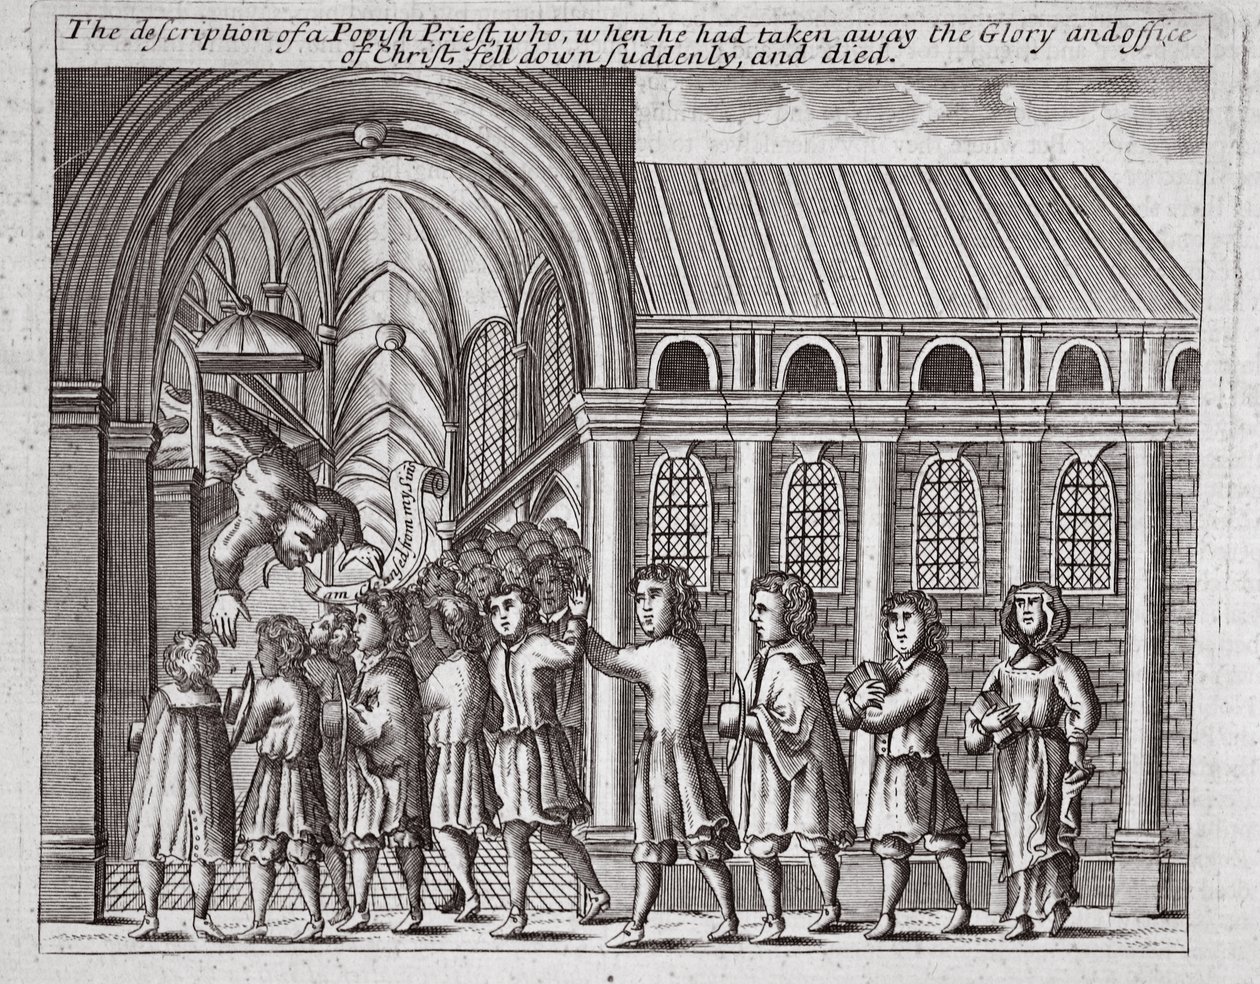 The deſcription of a Popiſh Prieſt, who, when he had taken away the Glory and office
of Chriſt, fell down ſuddenly, and died.
am
from my